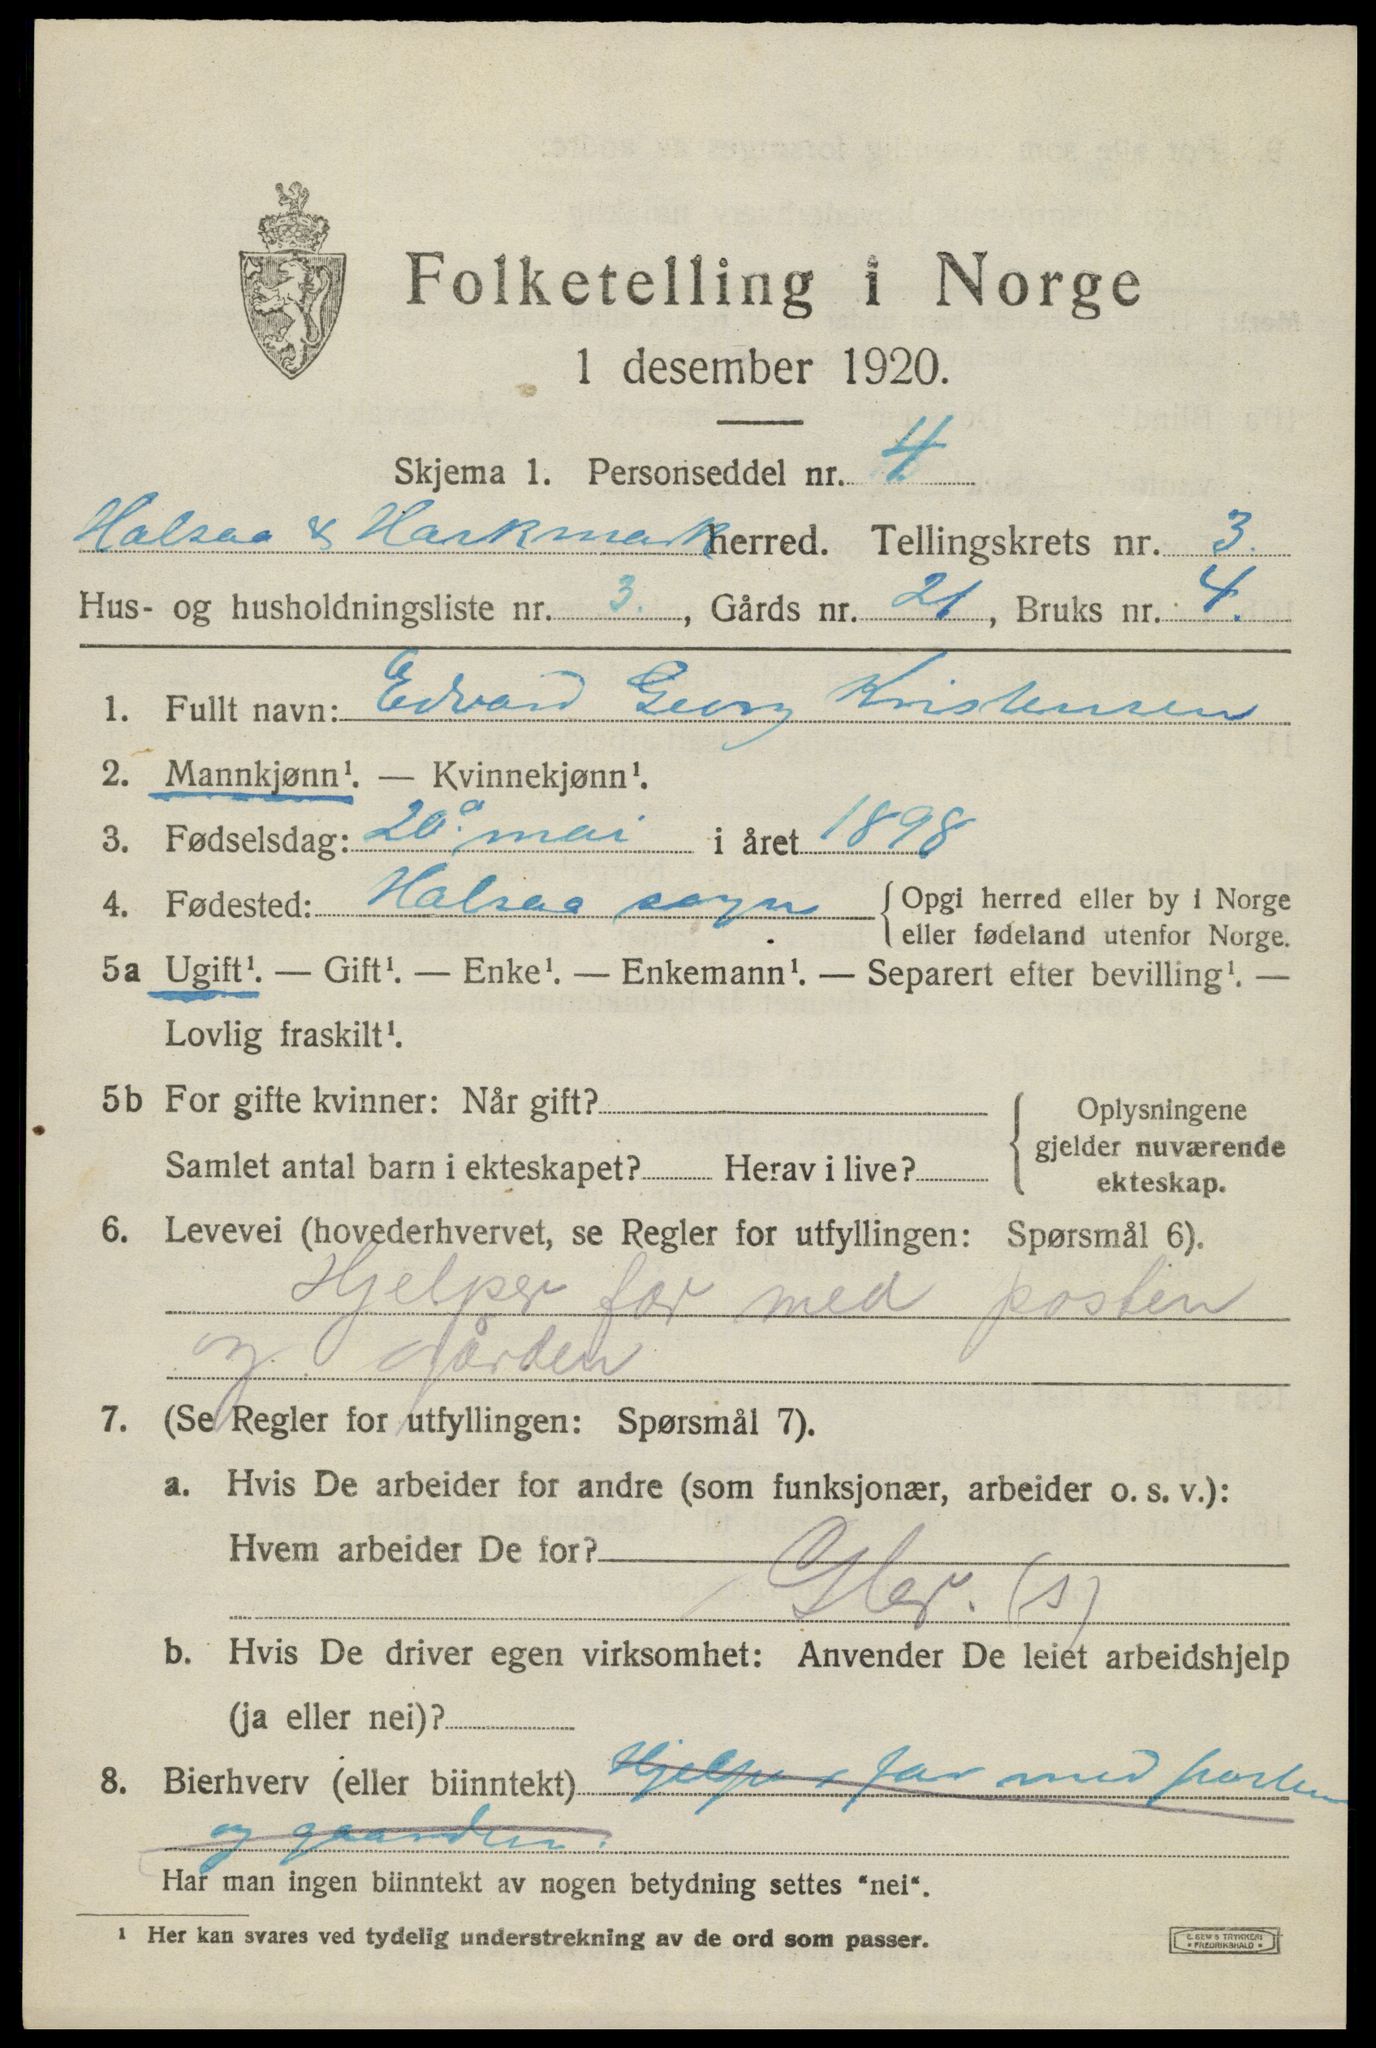 Folketelling i Norge
1 desember 1920.
Skjema 1. Personseddel nr. 4
Halsaa & Harkmark herred. Tellingskrets nr. 3.
Hus- og husholdningsliste nr. 3., Gårds nr. 21, Bruks nr. 4.
1. Fullt navn: Edvard Georg Kristensen
2. Mannkjønn¹. — Kvinnekjønn¹.
3. Fødselsdag: 20. mai i året 1898
4. Fødested: Halsaa sogn { Opgi herred eller by i Norge
eller fødeland utenfor Norge.
5a Ugift¹. — Gift¹. — Enke¹. — Enkemann¹. — Separert efter bevilling¹. —
Lovlig fraskilt¹.
5b For gifte kvinner: Når gift?
Samlet antal barn i ekteskapet? Herav i live?
Oplysningene
gjelder nuværende
ekteskap.
6. Levevei (hovederhvervet, se Regler for utfyllingen: Spørsmål 6).
Hjelper far med posten
og gården
7. (Se Regler for utfyllingen: Spørsmål 7).
a. Hvis De arbeider for andre (som funksjonær, arbeider o. s. v.):
Hvem arbeider De for?
(s)
b. Hvis De driver egen virksomhet: Anvender De leiet arbeidshjelp
(ja eller nei)?
8. Bierhverv (eller biinntekt) Hjelper far med posten
og gaarden.
Har man ingen biinntekt av nogen betydning settes "nei".
¹ Her kan svares ved tydelig understrekning av de ord som passer.
E. SEM'S TRYKKERI
* FREDRIKSHALD *